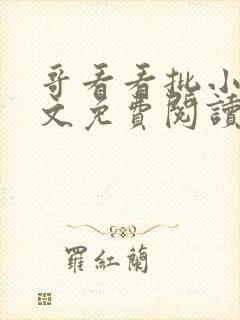 哥看看批小
文免費閱讀
羅紅蘭